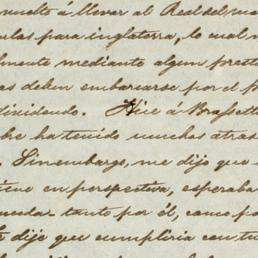 vuelto á llevar al Real del
ulas para inglaterra, lo cual
lmente mediante algun prest
as deben embarcarse por el p
dividendo. Hice á Brassett
he ha tenido muchas atras
. Sinembargo, me dijo que
tiene en perspectiva, esperaba
mudar tanto por él, como po
le dije que cumpliria con tu